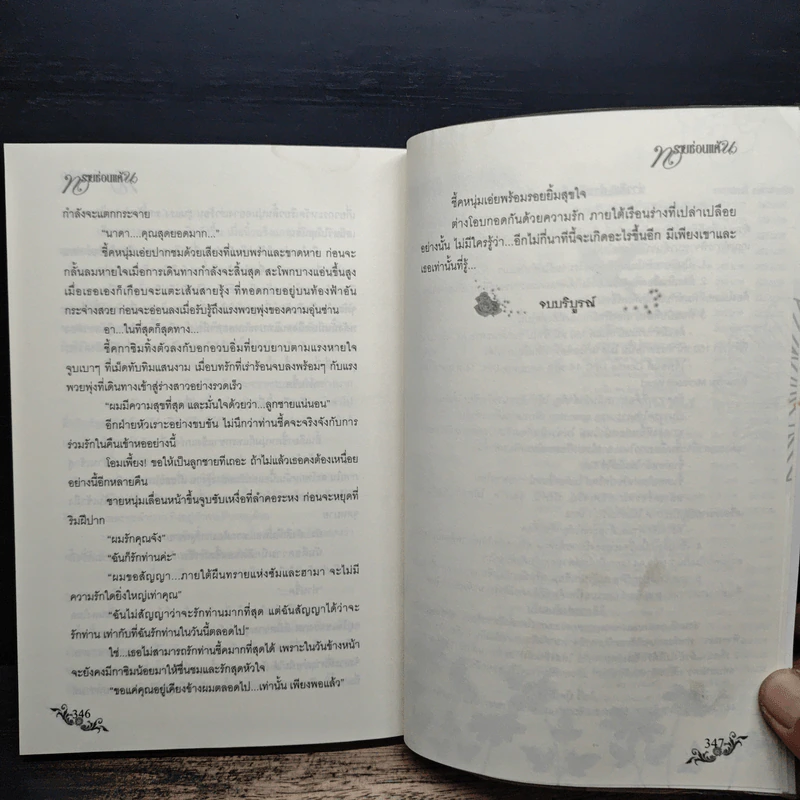 ทรายซ่อนแค้น
กำลังจะแตกกระจาย
"นาดา....คุณสุดยอดมาก..."
ชี้คหนุ่มเอ่ยปากชมด้วยเสียงที่แหบพร่าและขาดหาย ก่อนจะ
กลั้นลมหายใจเมื่อการเดินทางกำลังจะสิ้นสุด สะโพกบางแอ่นขึ้นสูง
เมื่อเธอเองก็เกือบจะแตะเส้นสายรุ้ง ที่ทอดกายอยู่บนท้องฟ้าอัน
กระจ่างสวย ก่อนจะอ่อนลงเมื่อรับรู้ถึงแรงพวยพุ่งของความอุ่นซ่าน
อา...ในที่สุดก็สุดทาง...
ชี้คกาซิมทิ้งตัวลงกับอกอวบอิ่มที่ยวบยาบตามแรงหายใจ
จูบเบาๆ ที่เม็ดทับทิมแสนงาม เมื่อบทรักที่เร่าร้อนจบลงพร้อมๆ กับแรง
พวยพุ่งที่เดินทางเข้าสู่ร่างสาวอย่างรวดเร็ว
"ผมมีความสุขที่สุด และมั่นใจด้วยว่า...ลูกชายแน่นอน"
อีกฝ่ายหัวเราะอย่างขบขัน ไม่นึกว่าท่านชี้คจะจริงจังกับการ
ร่วมรักในคืนเข้าหออย่างนี้
โอมเพี้ยง! ขอให้เป็นลูกชายทีเถอะ ถ้าไม่แล้วเธอคงต้องเหนื่อย
อย่างนี้อีกหลายคืน
ชายหนุ่มเลื่อนหน้าขึ้นจูบซับเหงื่อที่ลำคอระหง ก่อนจะหยุดที่
ริมฝีปาก
"ผมรักคุณจัง"
"ฉันก็รักท่านค่ะ"
"ผมขอสัญญา...ภายใต้ผืนทรายแห่งซัมและฮามา จะไม่มี
ความรักใดยิ่งใหญ่เท่าคุณ"
"ฉันไม่สัญญาว่าจะรักท่านมากที่สุด แต่ฉันสัญญาได้ว่าจะ
รักท่าน เท่ากับที่ฉันรักท่านในวันนี้ตลอดไป"
ใช่...เธอไม่สามารถรักท่านชี้คมากที่สุดได้ เพราะในวันข้างหน้า
จะยังคงมีกาซิมน้อยมาให้ชื่นชมและรักสุดหัวใจ
"ขอแค่คุณอยู่เคียงข้างผมตลอดไป...เท่านั้น เพียงพอแล้ว"
346
ทรายซ่อนแค้น
ชี้คหนุ่มเอ่ยพร้อมรอยยิ้มสุขใจ
ต่างโอบกอดกันด้วยความรัก ภายใต้เรือนร่างที่เปล่าเปลือย
อย่างนั้น ไม่มีใครรู้ว่า...อีกไม่กี่นาทีนี้จะเกิดอะไรขึ้นอีก มีเพียงเขาและ
เธอเท่านั้นที่รู้...
จบบริบูรณ์
347